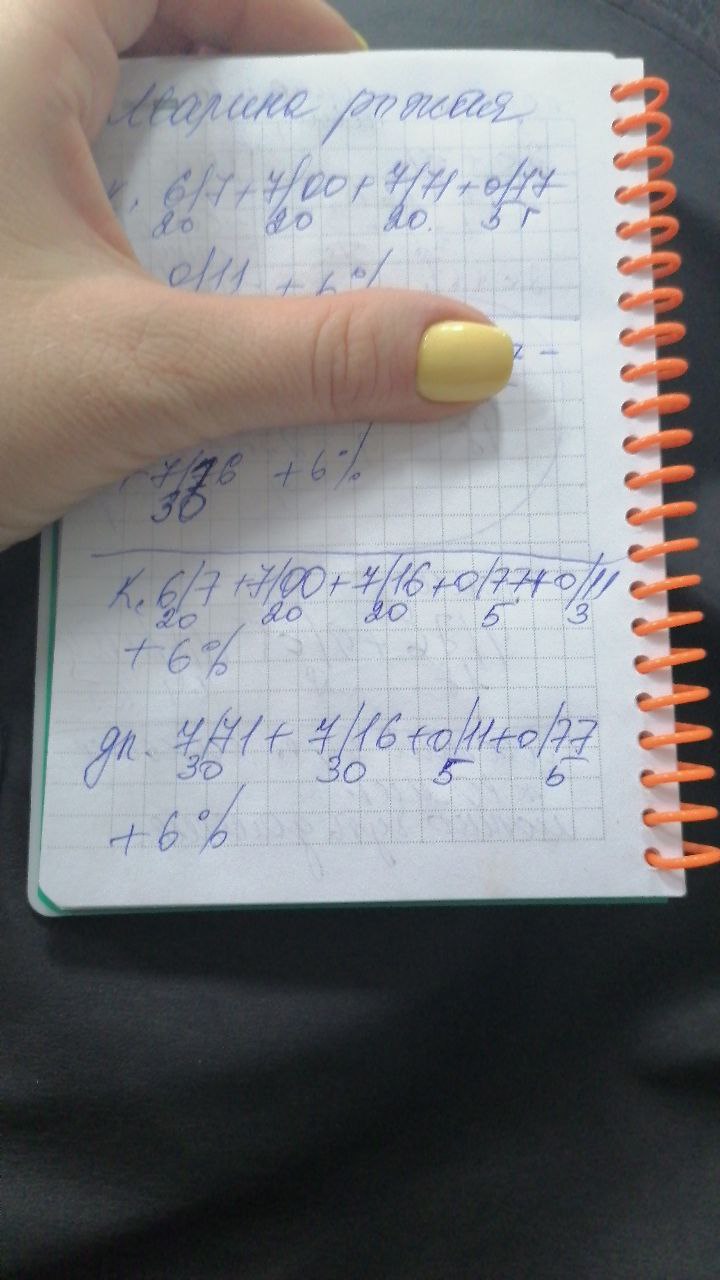 Марина рыжая
к. 6/7 + 7/00 + 7/71 + 0/77
20 20 20. 5
0/11 + 6%
+ 7/76 + 6%
30
К. 6/7 + 7/00 + 7/16 + 0/77 + 0/11
20 20 20 5 3
+ 6%
дл. 7/71 + 7/16 + 0/11 + 0/77
30 30 5 6
+ 6%